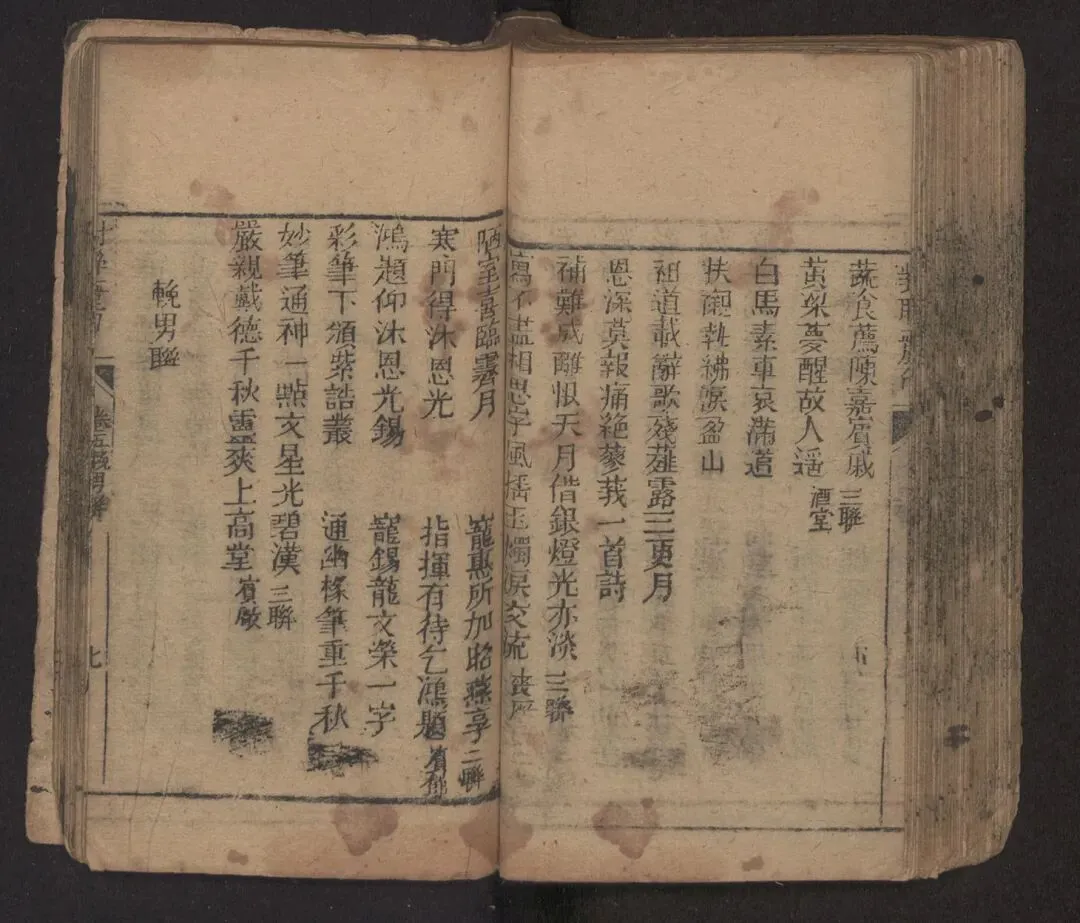 蔬食薦陳嘉賓戚
三聯
黃粱夢醒故人遥
酒堂
白馬素車哀滿道
扶轝執紼淚盈山
祖道載辭歌殘薤露三更月
恩深莫報痛絶蓼莪一首詩
補難成離恨天月借銀燈光亦淡
三聯
寫不盡相思字風搖玉燭淚交流
喪座
陋室喜臨霽月
寵惠所加昭燕享
二聯
寒門得沐恩光
指揮有待乞鴻題
賓館
鴻題仰沐恩光錫
寵錫龍文榮一字
彩筆下頒紫誥叢
通幽椽筆重千秋
妙筆通神一點文星光碧漢
三聯
嚴親戴德千秋靈爽上高堂
賓廠
輓男聯
卷五輓男聯
七